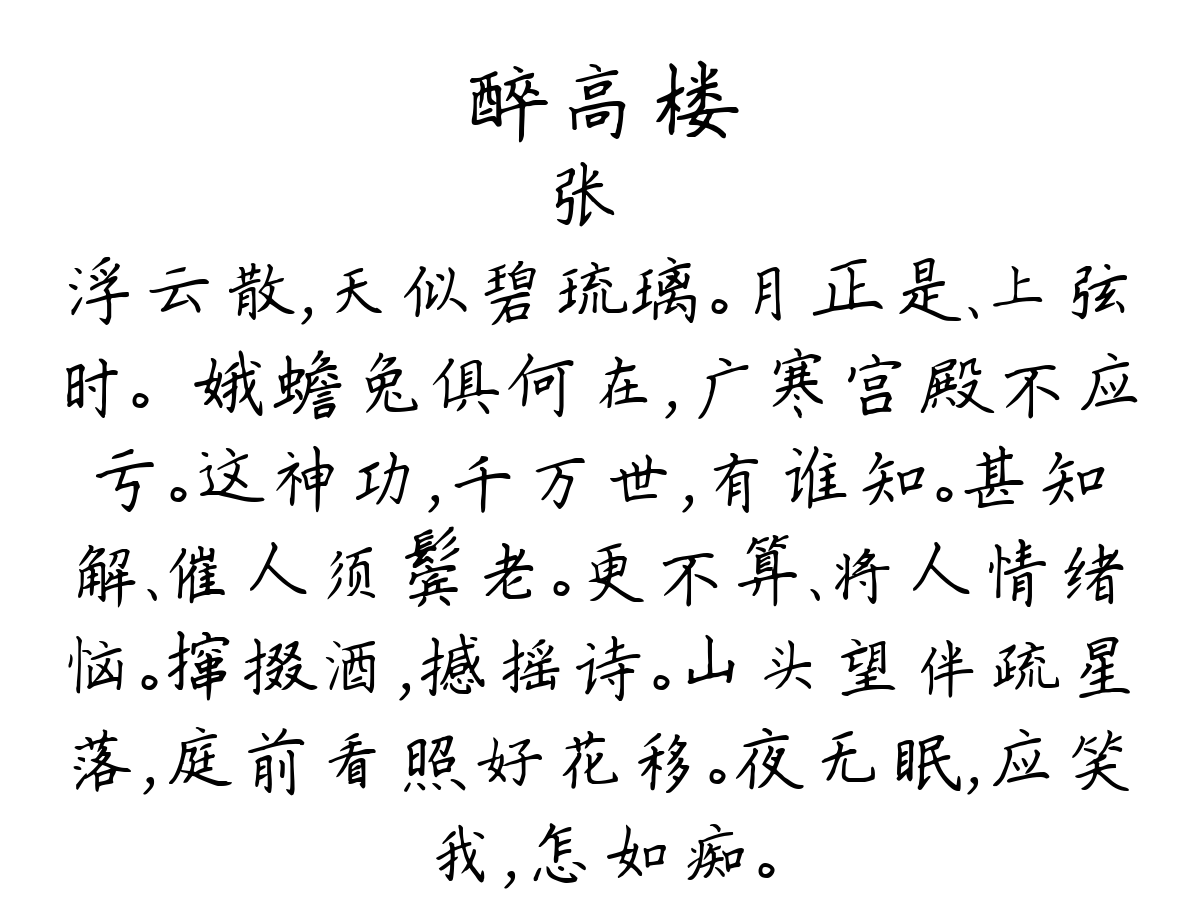 醉高楼
张
浮云散,天似碧琉璃。月正是、上弦
时。娥蟾兔俱何在,广寒宫殿不应
亏。这神功,千万世,有谁知。甚知
解、催人须鬓老。更不算、将人情绪
恼。撺掇酒,撼摇诗。山头望伴疏星
落,庭前看照好花移。夜无眠,应笑
我,怎如痴。